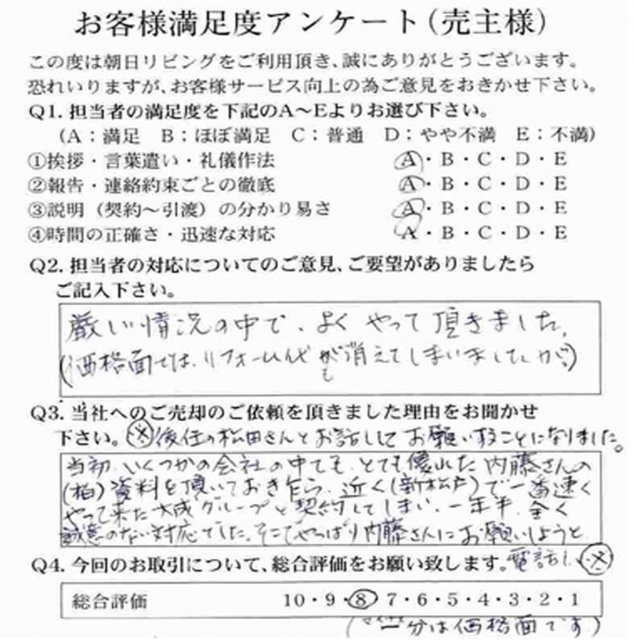 お客様満足度アンケート(売主様)
この度は朝日リビングをご利用頂き、誠にありがとうございます。
恐れいりますが、お客様サービス向上の為ご意見をおきかせ下さい。
Q1. 担当者の満足度を下記のA〜Eよりお選び下さい。
(A：満足 B：ほぼ満足 C：普通 D：やや不満 E：不満)
①挨拶・言葉遣い・礼儀作法 A・B・C・D・E
②報告・連絡約束ごとの徹底 A・B・C・D・E
③説明（契約〜引渡）の分かり易さ A・B・C・D・E
④時間の正確さ・迅速な対応 A・B・C・D・E
Q2. 担当者の対応についてのご意見、ご要望がありましたら
ご記入下さい。
厳しい情況の中で、よくやって頂きました。
(価格面では、リフォーム代も消えてしまいましたが。)
Q3. 当社へのご売却のご依頼を頂きました理由をお聞かせ
下さい。※後任の松田さんとお話しして お願いすることになりました。
当初、いくつかの会社の中でも、とても優れた内藤さんの
(柏)資料を頂いておき乍ら、近く(新松戸)で一番速く
やって来た大成グループと契約してしまい、一年半、全く
誠意のない対応でした。そこでやっぱり内藤さんにお願いしようと
電話し、※
Q4. 今回のお取引について、総合評価をお願い致します。
総合評価 10・9・8・7・6・5・4・3・2・1
(マイナス 分は価格面です)